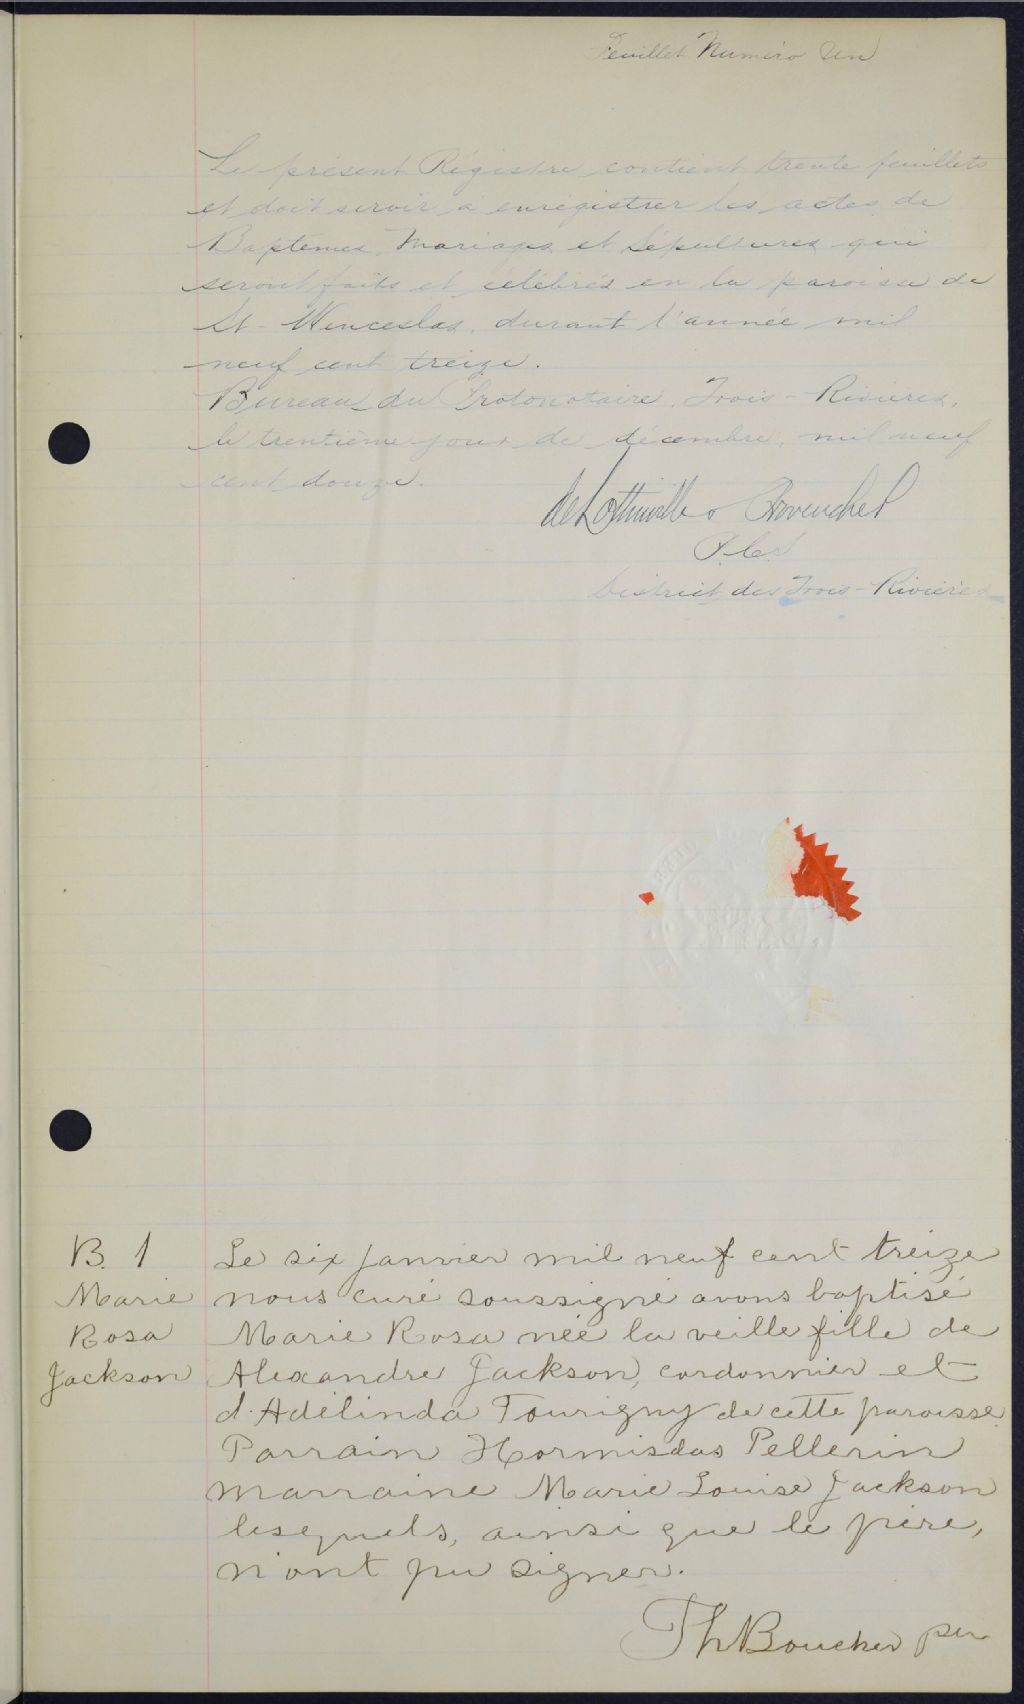 Feuillet Numéro Un
Le présent Régistre contient trente feuillets
et doit servir à enrégistrer les actes de
Baptêmes, Mariages et Sépultures qui
seront faits et célébrés en la paroisse de
St-Wenceslas, durant l'année mil
neuf cent treize.
Bureau du Protonotaire, Trois-Rivières,
le trentième jour de décembre, mil neuf
cent douze.
Provencher
District des Trois-Rivières
B. 1
Marie
Rosa
Jackson
Le six janvier mil neuf cent treize
nous curé soussigné avons baptisé
Marie Rosa née la veille fille de
Alexandre Jackson, cordonnier et
d'Adélinda Tourigny de cette paroisse.
Parrain Hormisdas Pellerin
marraine Marie Louise Jackson
lesquels, ainsi que le père,
n'ont pu signer.
Th Boucher ptr